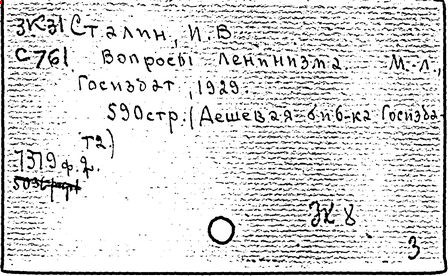 3К31 Сталин, И.В.
С761 Вопросы Ленинизма М.-Л.,
Госиздат, 1929.
590стр. (Дешевая биб-ка Госизда-
та)
7379 ф.д.
ЗК 8
3